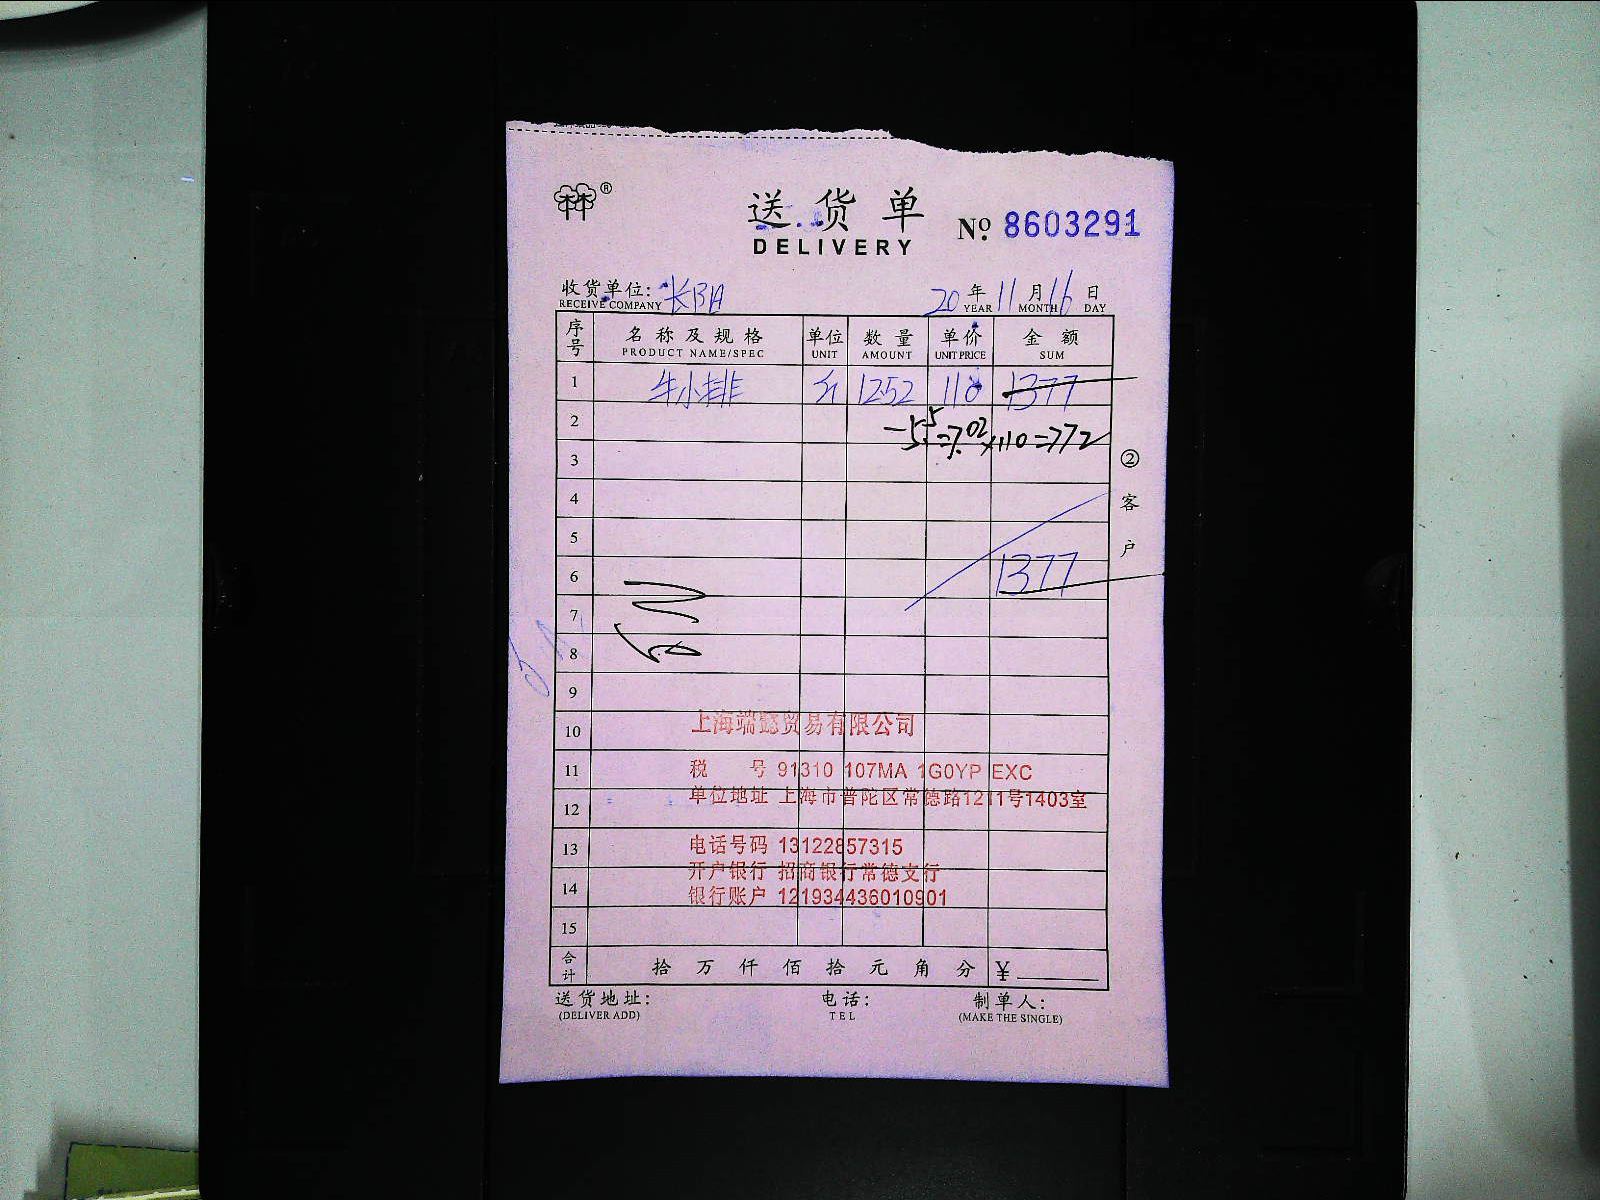 林®
送货单 № 8603291
DELIVERY
收货单位: 20年11月16日
RECEIVE COMPANY YEAR MONTH DAY
序号 名称及规格 单位 数量 单价 金额
PRODUCT NAME/SPEC UNIT AMOUNT UNIT PRICE SUM
1 牛小排 斤 1252 110 1377
2 -5.5=7.02×110=772
3
② 客户
4
5
6 1377
7
8
9
10 上海端懿贸易有限公司
11 税 号 91310 107MA 1G0YP EXC
单位地址 上海市普陀区常德路1211号1403室
12
13 电话号码 13122857315
开户银行 招商银行常德支行
14 银行账户 121934436010901
15
合计 拾 万 仟 佰 拾 元 角 分 ¥
送货地址: 电话: 制单人:
(DELIVER ADD) TEL (MAKE THE SINGLE)